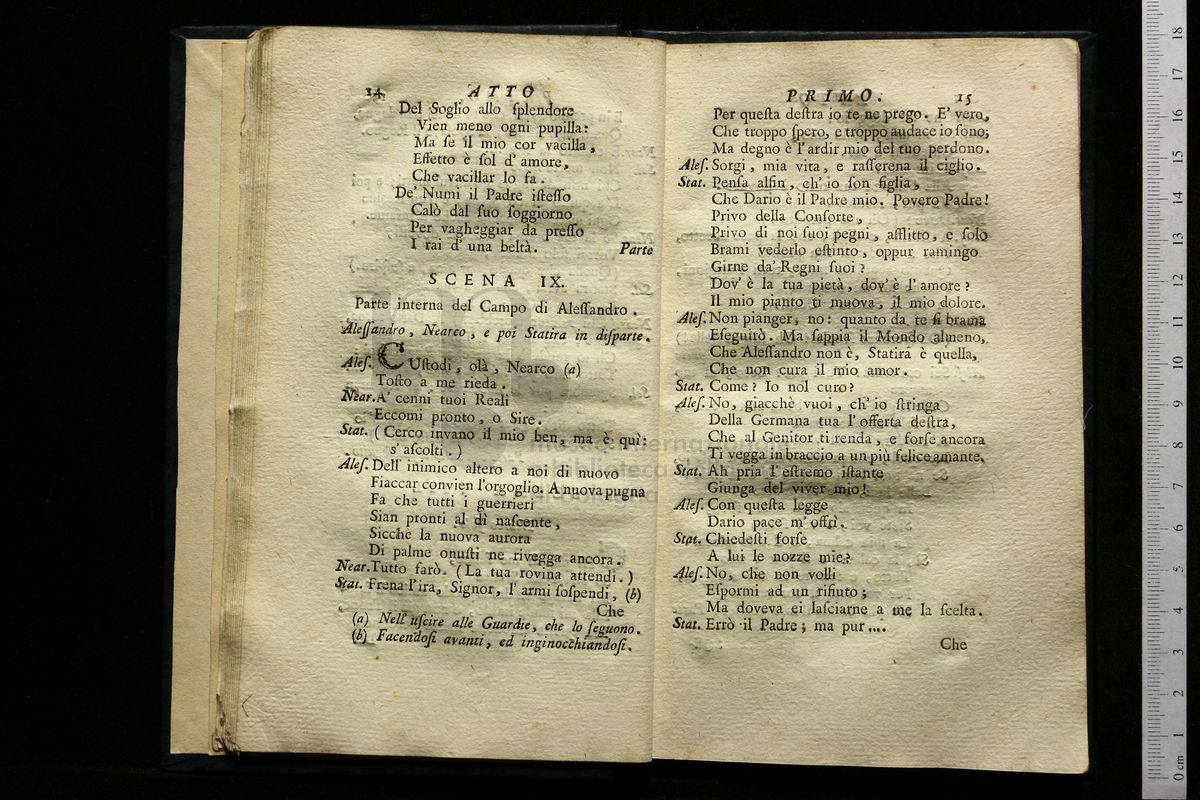 14 ATTO
Del Soglio allo ſplendore
Vien meno ogni pupilla:
Ma ſe il mio cor vacilla,
Effetto è ſol d' amore,
Che vacillar lo fa.
De' Numi il Padre iſteſſo
Calò dal ſuo ſoggiorno
Per vagheggiar da preſſo
I rai d' una beltà. Parte
SCENA IX.
Parte interna del Campo di Aleſſandro.
Aleſſandro, Nearco, e poi Statira in diſparte.
Aleſ. CUſtodi, olà, Nearco (a)
Toſto a me rieda.
Near. A' cenni tuoi Reali
Eccomi pronto, o Sire.
Stat. (Cerco invano il mio ben, ma è quì:
s' aſcolti.)
Aleſ. Dell' inimico altero a noi di nuovo
Fiaccar convien l'orgoglio. A nuova pugna
Fa che tutti i guerrieri
Sian pronti al dì naſcente,
Sicchè la nuova aurora
Di palme onuſti ne rivegga ancora.
Near. Tutto farò. (La tua rovina attendi.)
Stat. Frena l'ira, Signor, l' armi ſoſpendi, (b)
Che
(a) Nell' uſcire alle Guardie, che lo ſeguono.
(b) Facendoſi avanti, ed inginocchiandoſi.
PRIMO. 15
Per queſta deſtra io te ne prego. E' vero,
Che troppo ſpero, e troppo audace io ſono;
Ma degno è l'ardir mio del tuo perdono.
Aleſ. Sorgi, mia vita, e raſſerena il ciglio.
Stat. Penſa alfin, ch' io ſon figlia,
Che Dario è il Padre mio. Povero Padre!
Privo della Conſorte,
Privo di noi ſuoi pegni, afflitto, e ſolo
Brami vederlo eſtinto, oppur ramingo
Girne da' Regni ſuoi?
Dov' è la tua pietà, dov' è l' amore?
Il mio pianto ti muova, il mio dolore.
Aleſ. Non pianger, no: quanto da te ſi brama
Eſeguirò. Ma ſappia il Mondo almeno,
Che Aleſſandro non è, Statira è quella,
Che non cura il mio amor.
Stat. Come? Io nol curo?
Aleſ. No, giacchè vuoi, ch' io ſtringa
Della Germana tua l' offerta deſtra,
Che al Genitor ti renda, e forſe ancora
Ti vegga in braccio a un più felice amante.
Stat. Ah pria l' eſtremo iſtante
Giunga del viver mio!
Aleſ. Con queſta legge
Dario pace m' offrì.
Stat. Chiedeſti forſe
A lui le nozze mie?
Aleſ. No, che non volli
Eſpormi ad un rifiuto;
Ma doveva ei laſciarne a me la ſcelta.
Stat. Errò il Padre; ma pur....
Che